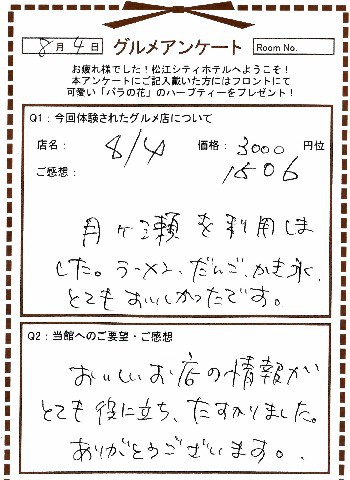 8月4日 グルメアンケート Room No.
お疲れ様でした！松江シティホテルへようこそ！
本アンケートにご記入戴いた方にはフロントにて
可愛い「バラの花」のハーブティーをプレゼント！
Q1：今回体験されたグルメ店について
店名： 8/4 価格： 3000 円位
ご感想： 1506
月ヶ瀬を利用しま
した。ラーメン、だんご、かき氷、
とてもおいしかったです。
Q2：当館へのご要望・ご感想
おいしいお店の情報が
とても役に立ち、たすかりました。
ありがとうございます。